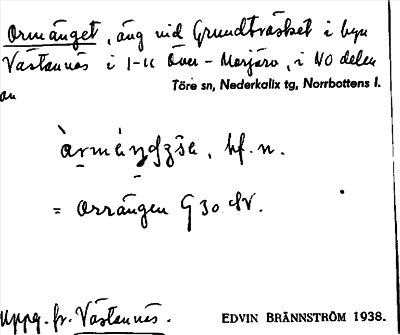 Ormänget, äng vid Grundträsket i byn
Västannäs i 1-11 Över-Morjärv, i NO delen
av
Töre sn, Nederkalix tg, Norrbottens l.
bf. n.
= Orrängen G 30 NV.
Uppg. fr. Västannäs.
EDVIN BRÄNNSTRÖM 1938.